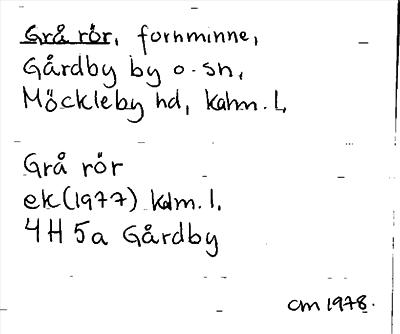 Grå rör, fornminne,
Gårdby by o. sn,
Möckleby hd, Kalm. l,
Grå rör
ek (1977) Kalm. l.
4H 5a Gårdby
CM 1978.